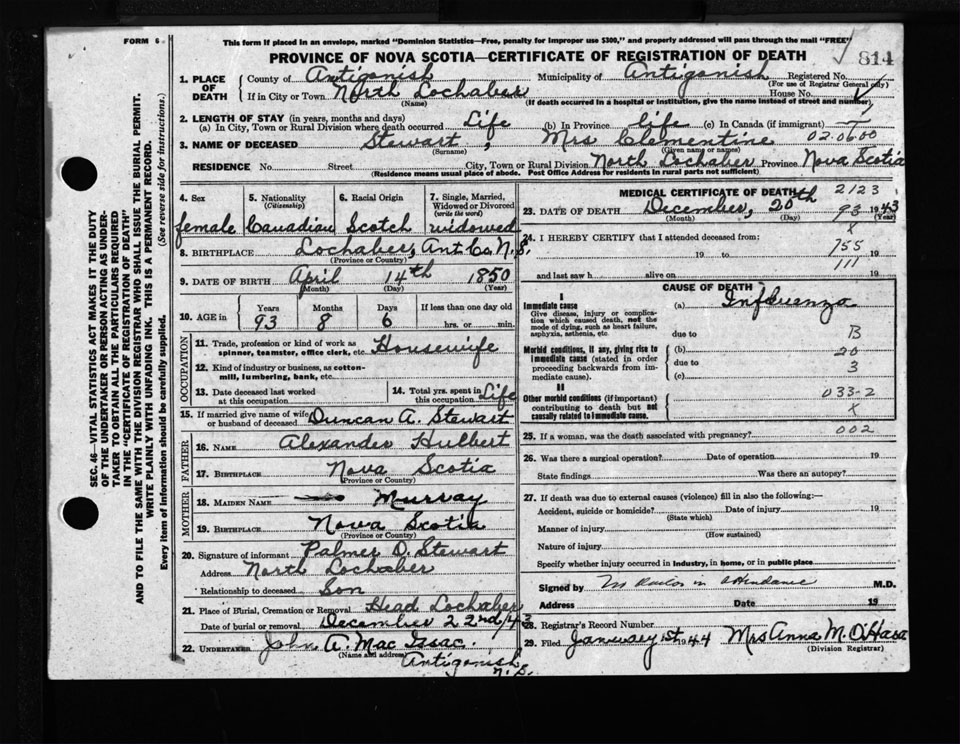 FORM 6
This form if placed in an envelope, marked "Dominion Statistics—Free, penalty for improper use $300," and properly addressed will pass through the mail "FREE"
PROVINCE OF NOVA SCOTIA—CERTIFICATE OF REGISTRATION OF DEATH
814
1. PLACE OF DEATH
County of Antigonish Municipality of Antigonish Registered No.
(For use of Registrar General only)
If in City or Town North Lochaber House No.
(Name) (If death occurred in a hospital or institution, give the name instead of street and number)
2. LENGTH OF STAY (in years, months and days)
(a) In City, Town or Rural Division where death occurred Life (b) In Province life (c) In Canada (if immigrant)
02.06.00
3. NAME OF DECEASED Stewart, Mrs Clementine
(Surname) (Given name or names)
RESIDENCE No. Street City, Town or Rural Division North Lochaber Province Nova Scotia
(Residence means usual place of abode. Post Office Address for residents in rural parts not sufficient)
4. Sex
female
5. Nationality (Citizenship)
Canadian
6. Racial Origin
Scotch
7. Single, Married, Widowed or Divorced (write the word)
widowed
8. BIRTHPLACE Lochaber, Ant. Co. N.S.
(Province or Country)
9. DATE OF BIRTH April 14th 1850
(Month) (Day) (Year)
10. AGE in Years Months Days If less than one day old
93 8 6 hrs. or min.
OCCUPATION
11. Trade, profession or kind of work as spinner, teamster, office clerk, etc. Housewife
12. Kind of industry or business, as cotton-mill, lumbering, bank, etc.
13. Date deceased last worked at this occupation
14. Total yrs. spent in this occupation Life
15. If married give name of wife or husband of deceased Duncan A. Stewart
FATHER
16. NAME Alexander Hulbert
17. BIRTHPLACE Nova Scotia
(Province or Country)
MOTHER
18. MAIDEN NAME Murray
19. BIRTHPLACE Nova Scotia
(Province or Country)
20. Signature of informant Palmer D. Stewart
Address North Lochaber
Relationship to deceased Son
21. Place of Burial, Cremation or Removal Head Lochaber
Date of burial or removal December 22nd/43
22. UNDERTAKER John A. Mac Isaac
(Name and address)
Antigonish
N.S.
MEDICAL CERTIFICATE OF DEATH
2123
23. DATE OF DEATH December, 20th 1943
(Month) (Day) (Year)
93
X
24. I HEREBY CERTIFY that I attended deceased from:
19 to 19
755
and last saw h alive on 19
111
CAUSE OF DEATH
I
Immediate cause (a) Influenza
Give disease, injury or complication which caused death, not the mode of dying, such as heart failure, asphyxia, asthenia, etc.
due to
B
Morbid conditions, if any, giving rise to immediate cause (stated in order proceeding backwards from immediate cause).
(b)
20
due to
3
(c)
II
Other morbid conditions (if important) contributing to death but not causally related to immediate cause.
033-2
X
25. If a woman, was the death associated with pregnancy?
002
26. Was there a surgical operation? Date of operation 19
State findings Was there an autopsy?
27. If death was due to external causes (violence) fill in also the following:—
Accident, suicide or homicide? Date of injury 19
(State which)
Manner of injury
(How sustained)
Nature of injury
Specify whether injury occurred in industry, in home, or in public place
Signed by in attendance M.D.
Address Date 19
28. Registrar's Record Number
29. Filed January 1st 1944 Mrs Anna M. O'Hara
(Division Registrar)
SEC. 46—VITAL STATISTICS ACT MAKES IT THE DUTY
OF THE UNDERTAKER OR PERSON ACTING AS UNDER-
TAKER TO OBTAIN ALL THE PARTICULARS REQUIRED
IN THE "CERTIFICATE OF REGISTRATION OF DEATH"
AND TO FILE THE SAME WITH THE DIVISION REGISTRAR WHO SHALL ISSUE THE BURIAL PERMIT.
WRITE PLAINLY WITH UNFADING INK. THIS IS A PERMANENT RECORD.
Every item of Information should be carefully supplied. (See reverse side for instructions.)